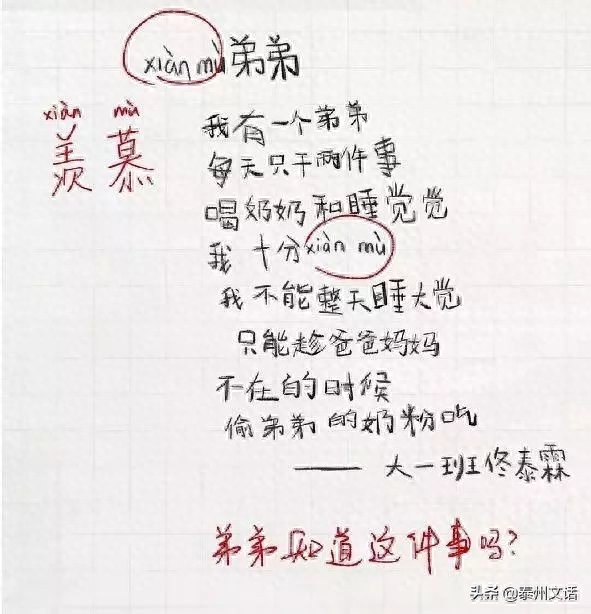 xiàn mù弟弟
xiàn mù
羡慕
我有一个弟弟
每天只干两件事
喝奶奶和睡觉觉
我十分xiàn mù
我不能整天睡大觉
只能趁爸爸妈妈
不在的时候
偷弟弟的奶粉吃
—— 大一班佟泰霖
弟弟知道这件事吗?
头条 @泰州文话